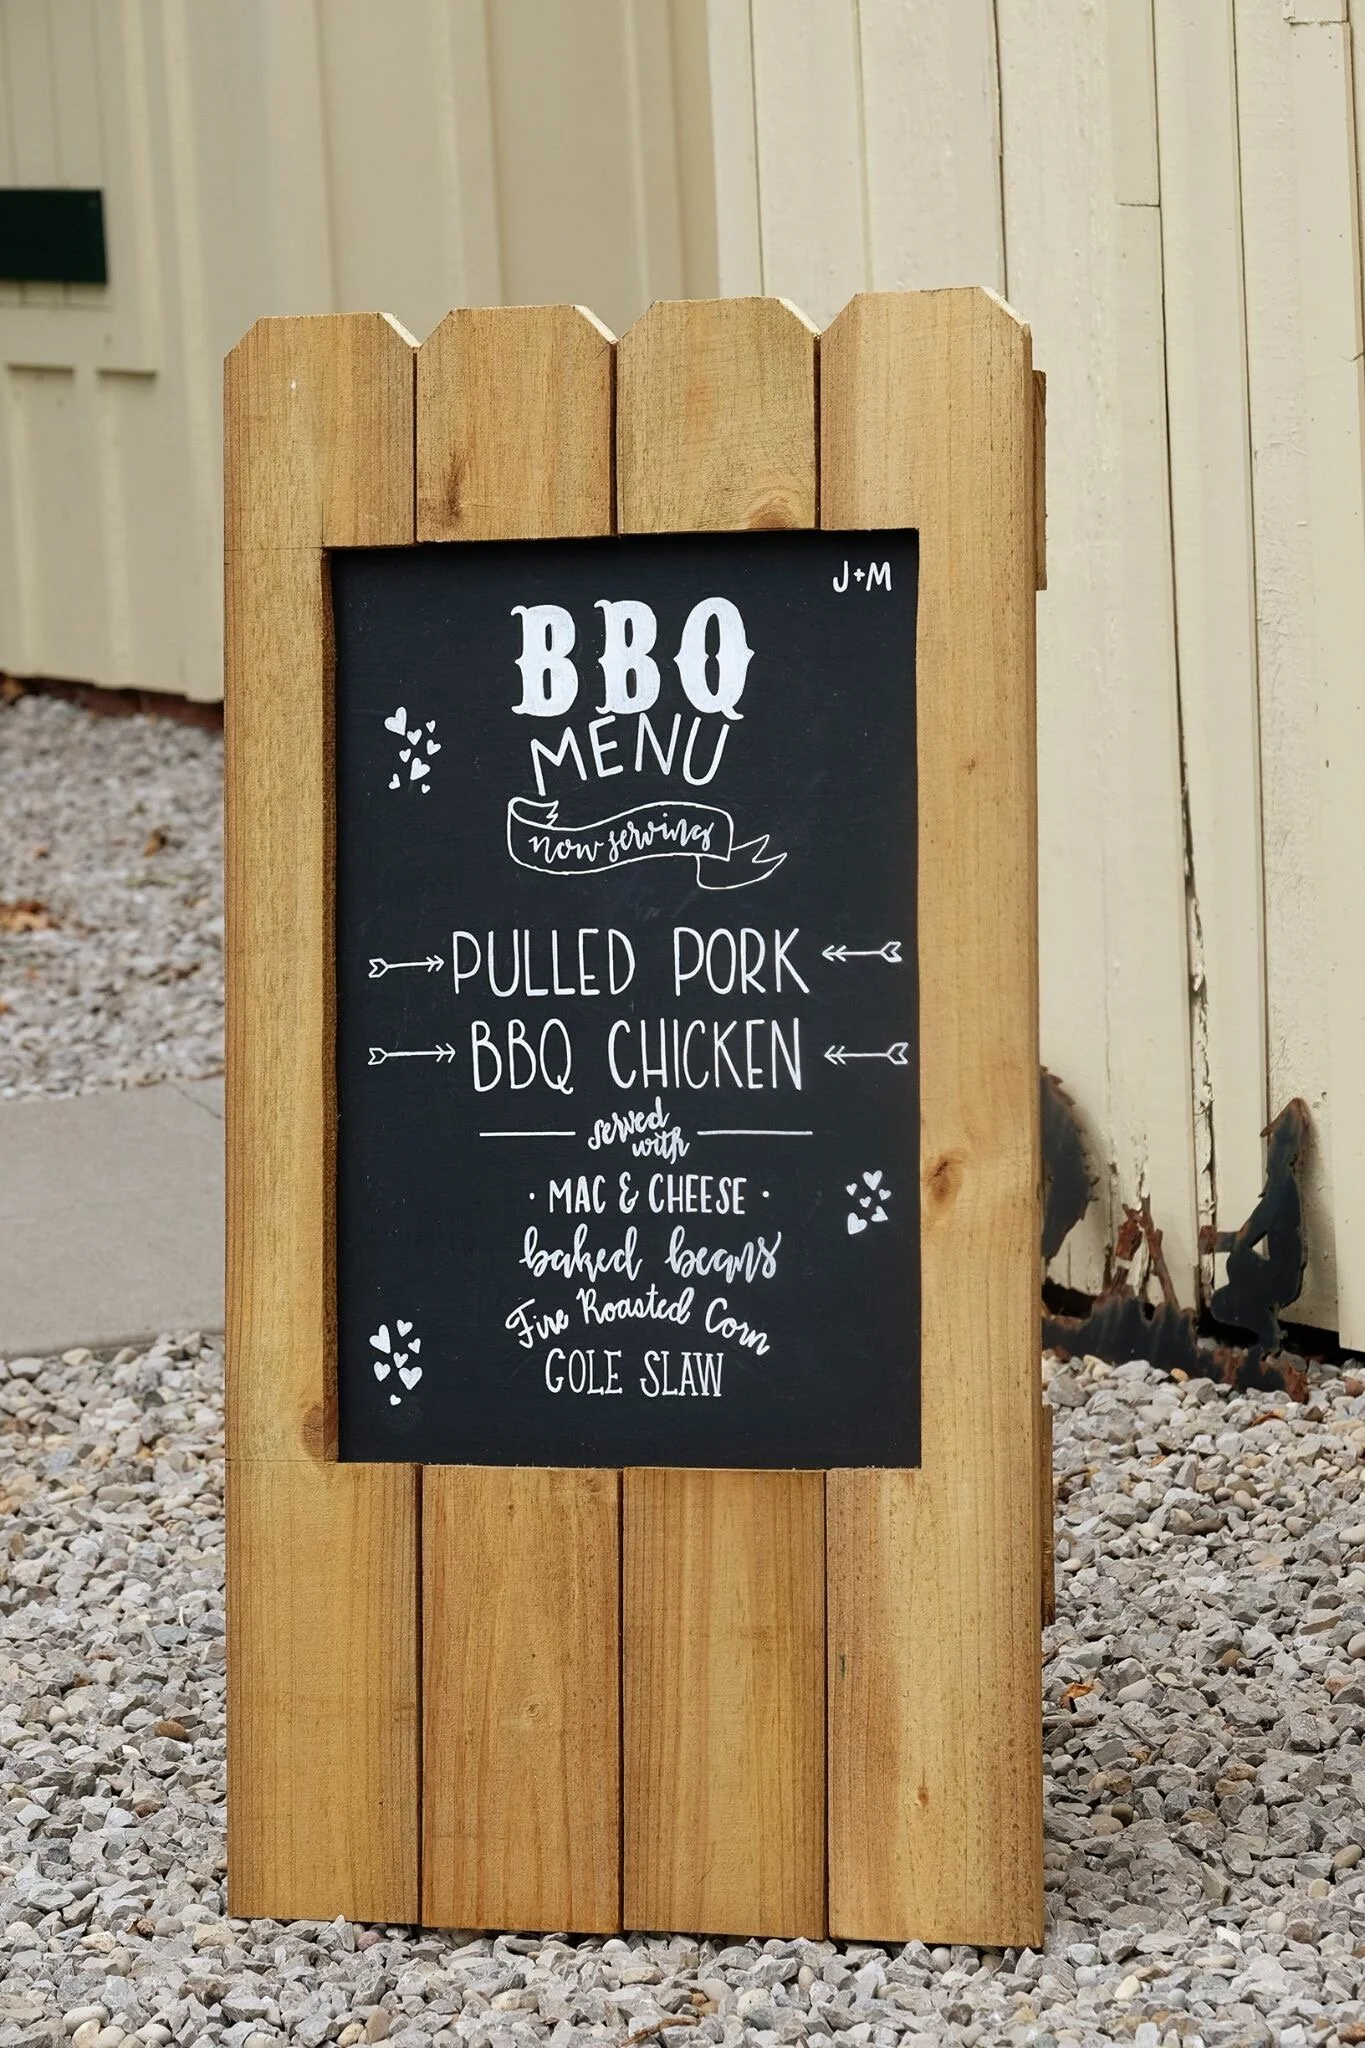 J+M
BBQ
MENU
now serving
PULLED PORK
BBQ CHICKEN
served
with
· MAC & CHEESE ·
baked beans
Fire Roasted Corn
COLE SLAW